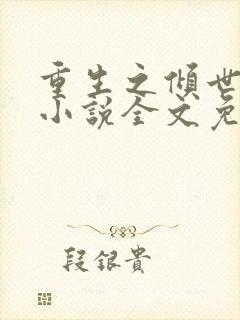 重生之傾世
小說全文免
段銀貴